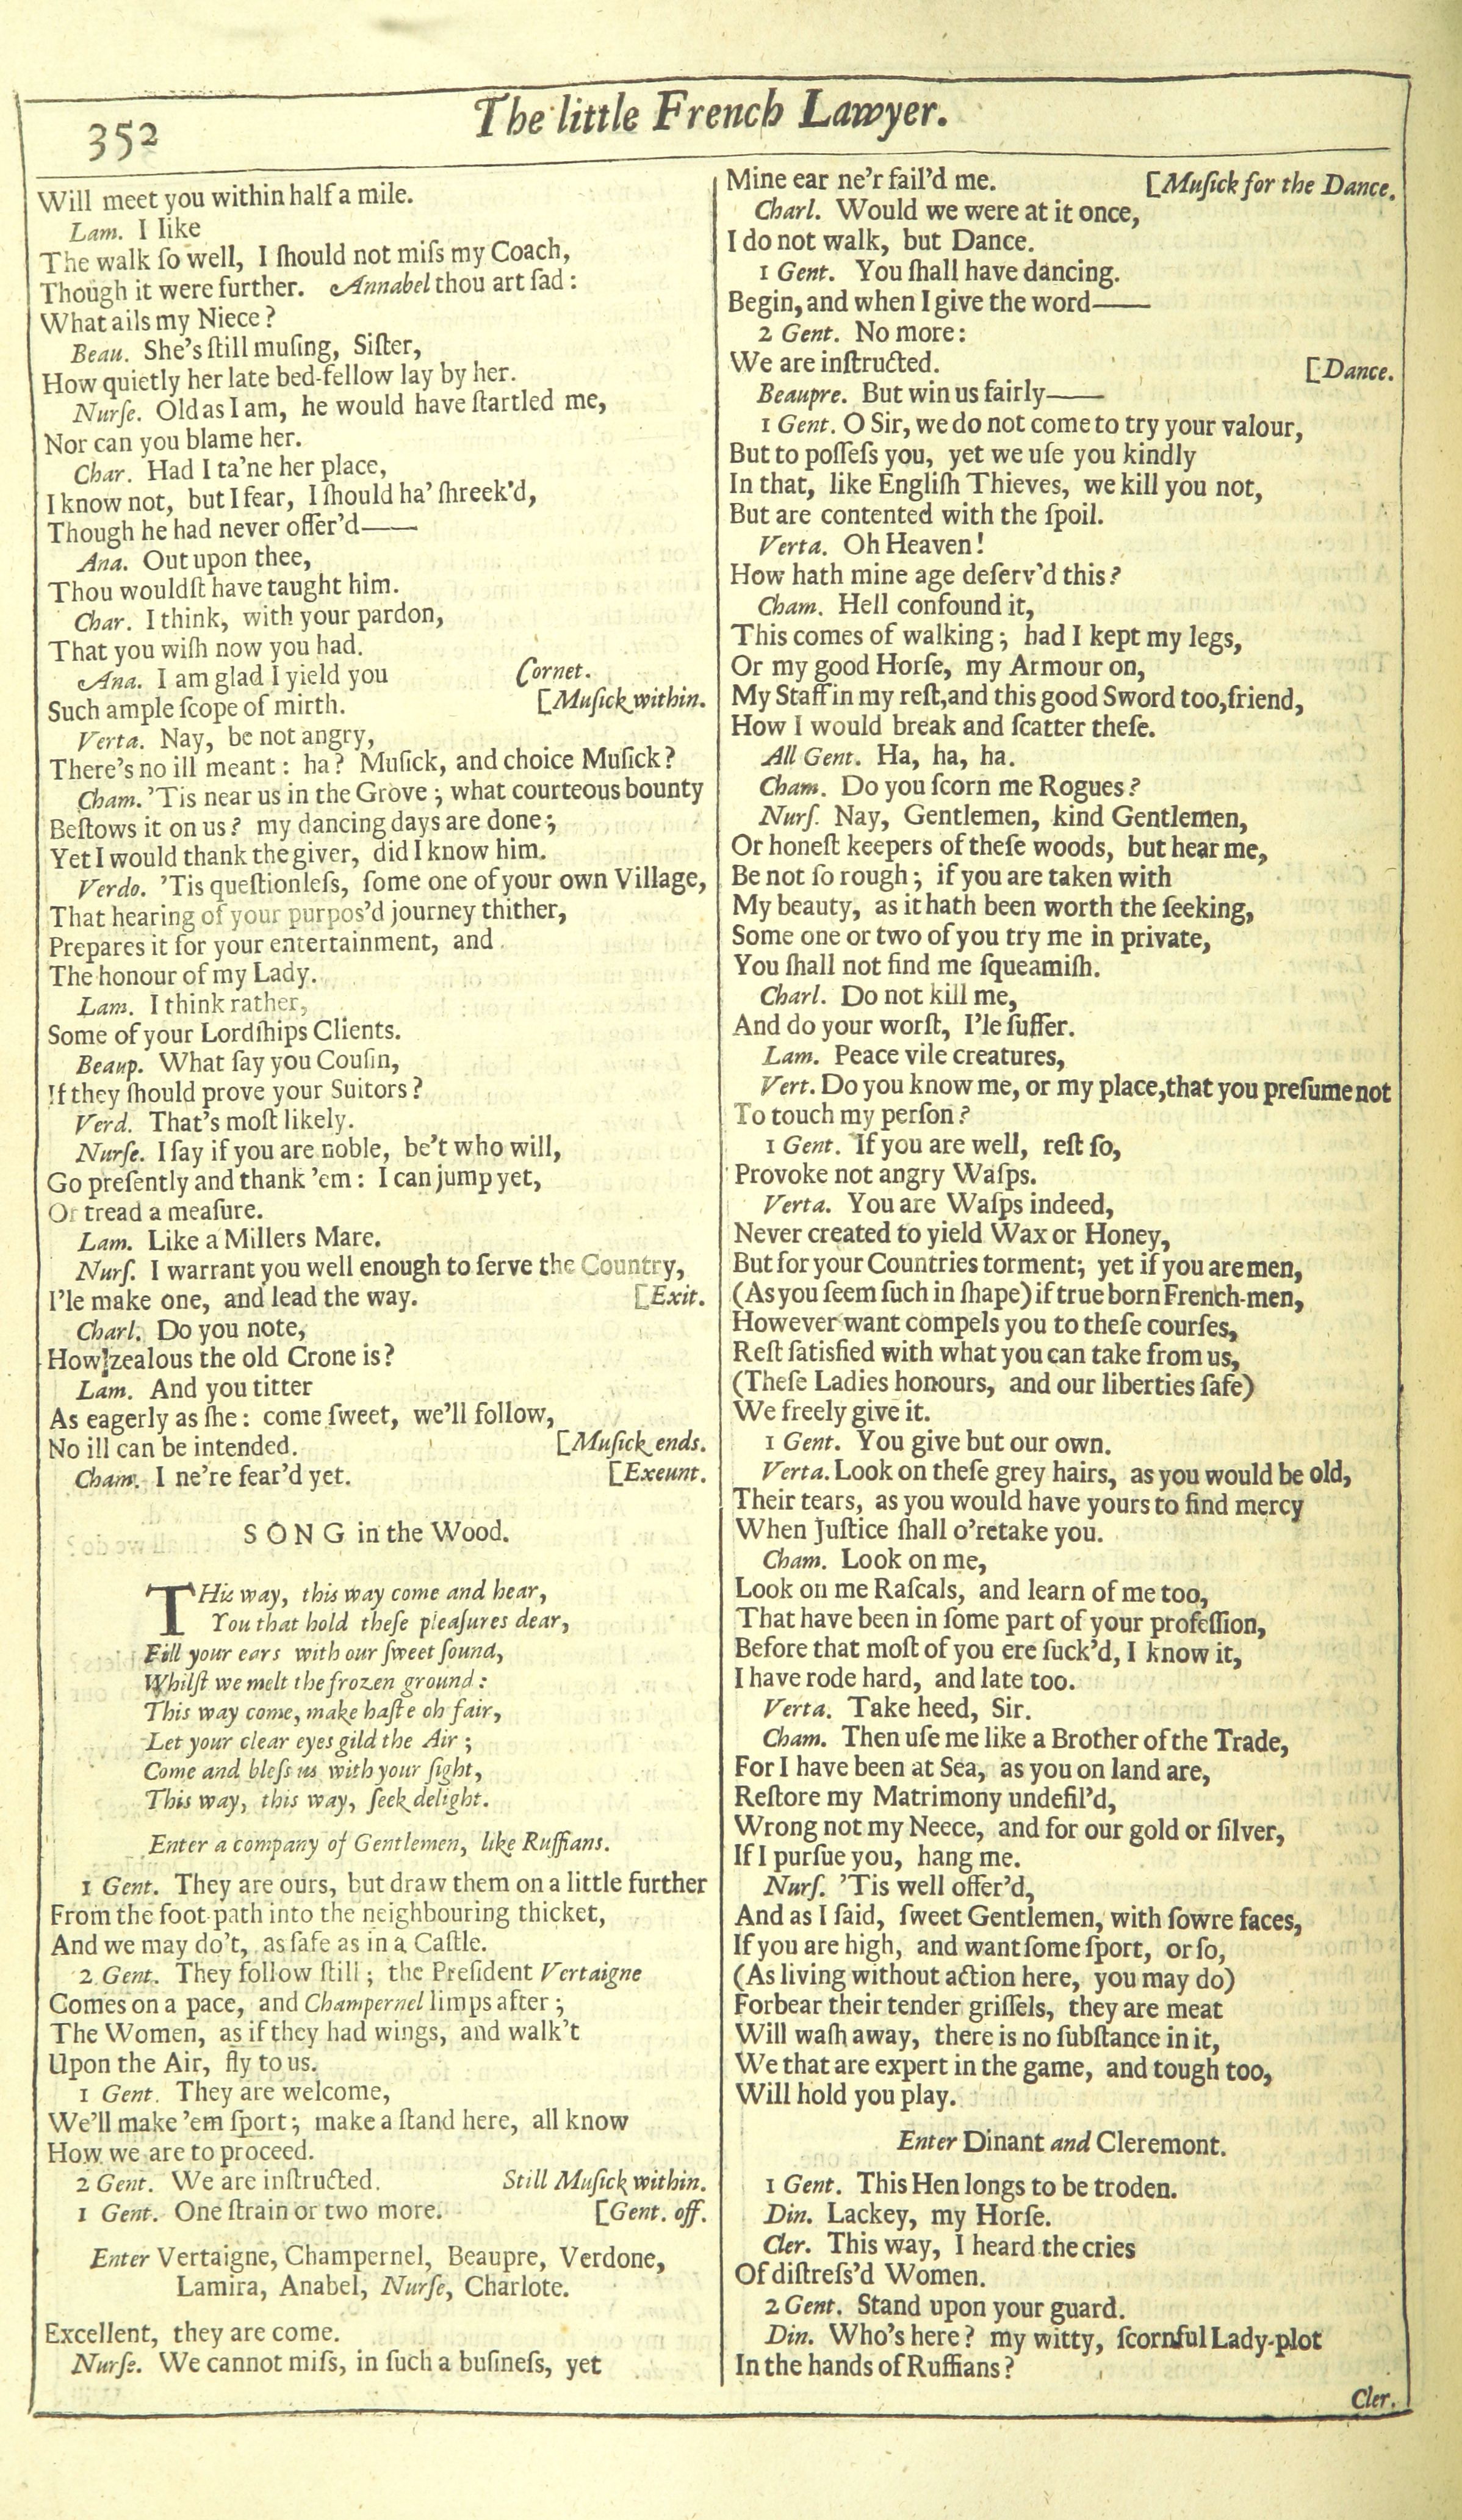 352
The little French Lawyer.
Will meet you within half a mile.
Lam. I like
The walk ſo well, I ſhould not miſs my Coach,
Though it were further. Annabel thou art ſad:
What ails my Niece?
Beau. She's ſtill muſing, Siſter,
How quietly her late bed-fellow lay by her.
Nurſe. Old as I am, he would have ſtartled me,
Nor can you blame her.
Char. Had I ta'ne her place,
I know not, but I fear, I ſhould ha' ſhreek'd,
Though he had never offer'd——
Ana. Out upon thee,
Thou wouldſt have taught him.
Char. I think, with your pardon,
That you wiſh now you had.
Ana. I am glad I yield you Cornet.
Such ample ſcope of mirth. [Muſick within.
Verta. Nay, be not angry,
There's no ill meant: ha? Muſick, and choice Muſick?
Cham. 'Tis near us in the Grove; what courteous bounty
Beſtows it on us? my dancing days are done;
Yet I would thank the giver, did I know him.
Verdo. 'Tis queſtionleſs, ſome one of your own Village,
That hearing of your purpos'd journey thither,
Prepares it for your entertainment, and
The honour of my Lady.
Lam. I think rather,
Some of your Lordſhips Clients.
Beaup. What ſay you Couſin,
If they ſhould prove your Suitors?
Verd. That's moſt likely.
Nurſe. I ſay if you are noble, be't who will,
Go preſently and thank 'em: I can jump yet,
Or tread a meaſure.
Lam. Like a Millers Mare.
Nurſ. I warrant you well enough to ſerve the Country,
I'le make one, and lead the way. [Exit.
Charl. Do you note,
How zealous the old Crone is?
Lam. And you titter
As eagerly as ſhe: come ſweet, we'll follow,
No ill can be intended. [Muſick ends.
Cham. I ne're fear'd yet. [Exeunt.
SONG in the Wood.
THis way, this way come and hear,
You that hold theſe pleaſures dear,
Fill your ears with our ſweet ſound,
Whilſt we melt the frozen ground:
This way come, make haſte oh fair,
Let your clear eyes gild the Air;
Come and bleſs us with your ſight,
This way, this way, ſeek delight.
Enter a company of Gentlemen, like Ruffians.
1 Gent. They are ours, but draw them on a little further
From the foot-path into the neighbouring thicket,
And we may do't, as ſafe as in a Caſtle.
2 Gent. They follow ſtill; the Preſident Vertaigne
Comes on a pace, and Champernel limps after;
The Women, as if they had wings, and walk't
Upon the Air, fly to us.
1 Gent. They are welcome,
We'll make 'em ſport; make a ſtand here, all know
How we are to proceed.
2 Gent. We are inſtructed. Still Muſick within.
1 Gent. One ſtrain or two more. [Gent. off.
Enter Vertaigne, Champernel, Beaupre, Verdone,
Lamira, Anabel, Nurſe, Charlote.
Excellent, they are come.
Nurſe. We cannot miſs, in ſuch a buſineſs, yet
Mine ear ne'r fail'd me. [Muſick for the Dance.
Charl. Would we were at it once,
I do not walk, but Dance.
1 Gent. You ſhall have dancing.
Begin, and when I give the word——
2 Gent. No more:
We are inſtructed. [Dance.
Beaupre. But win us fairly——
1 Gent. O Sir, we do not come to try your valour,
But to poſſeſs you, yet we uſe you kindly
In that, like Engliſh Thieves, we kill you not,
But are contented with the ſpoil.
Verta. Oh Heaven!
How hath mine age deſerv'd this?
Cham. Hell confound it,
This comes of walking; had I kept my legs,
Or my good Horſe, my Armour on,
My Staff in my reſt, and this good Sword too, friend,
How I would break and ſcatter theſe.
All Gent. Ha, ha, ha.
Cham. Do you ſcorn me Rogues?
Nurſ. Nay, Gentlemen, kind Gentlemen,
Or honeſt keepers of theſe woods, but hear me,
Be not ſo rough; if you are taken with
My beauty, as it hath been worth the ſeeking,
Some one or two of you try me in private,
You ſhall not find me ſqueamiſh.
Charl. Do not kill me,
And do your worſt, I'le ſuffer.
Lam. Peace vile creatures,
Vert. Do you know me, or my place, that you preſume not
To touch my perſon?
1 Gent. If you are well, reſt ſo,
Provoke not angry Waſps.
Verta. You are Waſps indeed,
Never created to yield Wax or Honey,
But for your Countries torment; yet if you are men,
(As you ſeem ſuch in ſhape) if true born French-men,
However want compels you to theſe courſes,
Reſt ſatisfied with what you can take from us,
(Theſe Ladies honours, and our liberties ſafe)
We freely give it.
1 Gent. You give but our own.
Verta. Look on theſe grey hairs, as you would be old,
Their tears, as you would have yours to find mercy
When Juſtice ſhall o'retake you.
Cham. Look on me,
Look on me Raſcals, and learn of me too,
That have been in ſome part of your profeſſion,
Before that moſt of you ere ſuck'd, I know it,
I have rode hard, and late too.
Verta. Take heed, Sir.
Cham. Then uſe me like a Brother of the Trade,
For I have been at Sea, as you on land are,
Reſtore my Matrimony undefil'd,
Wrong not my Neece, and for our gold or ſilver,
If I purſue you, hang me.
Nurſ. 'Tis well offer'd,
And as I ſaid, ſweet Gentlemen, with ſowre faces,
If you are high, and want ſome ſport, or ſo,
(As living without action here, you may do)
Forbear their tender griſſels, they are meat
Will waſh away, there is no ſubſtance in it,
We that are expert in the game, and tough too,
Will hold you play.
Enter Dinant and Cleremont.
1 Gent. This Hen longs to be troden.
Din. Lackey, my Horſe.
Cler. This way, I heard the cries
Of diſtreſs'd Women.
2 Gent. Stand upon your guard.
Din. Who's here? my witty, ſcornful Lady-plot
In the hands of Ruffians?
Cler.